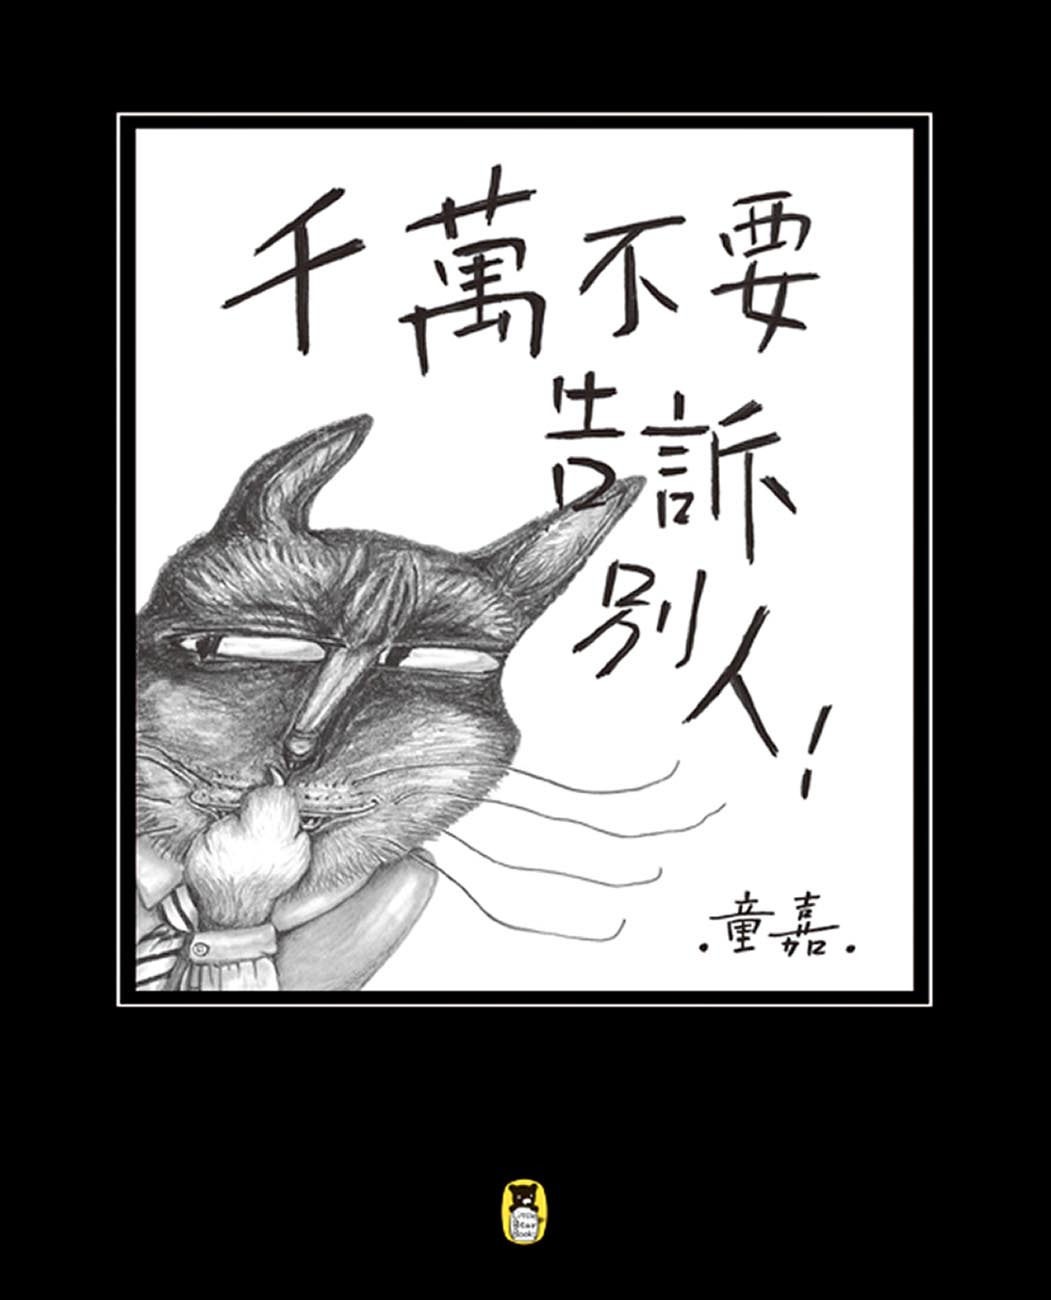 千萬不要
告訴
別人!
．童嘉．
Little
Bear
Books